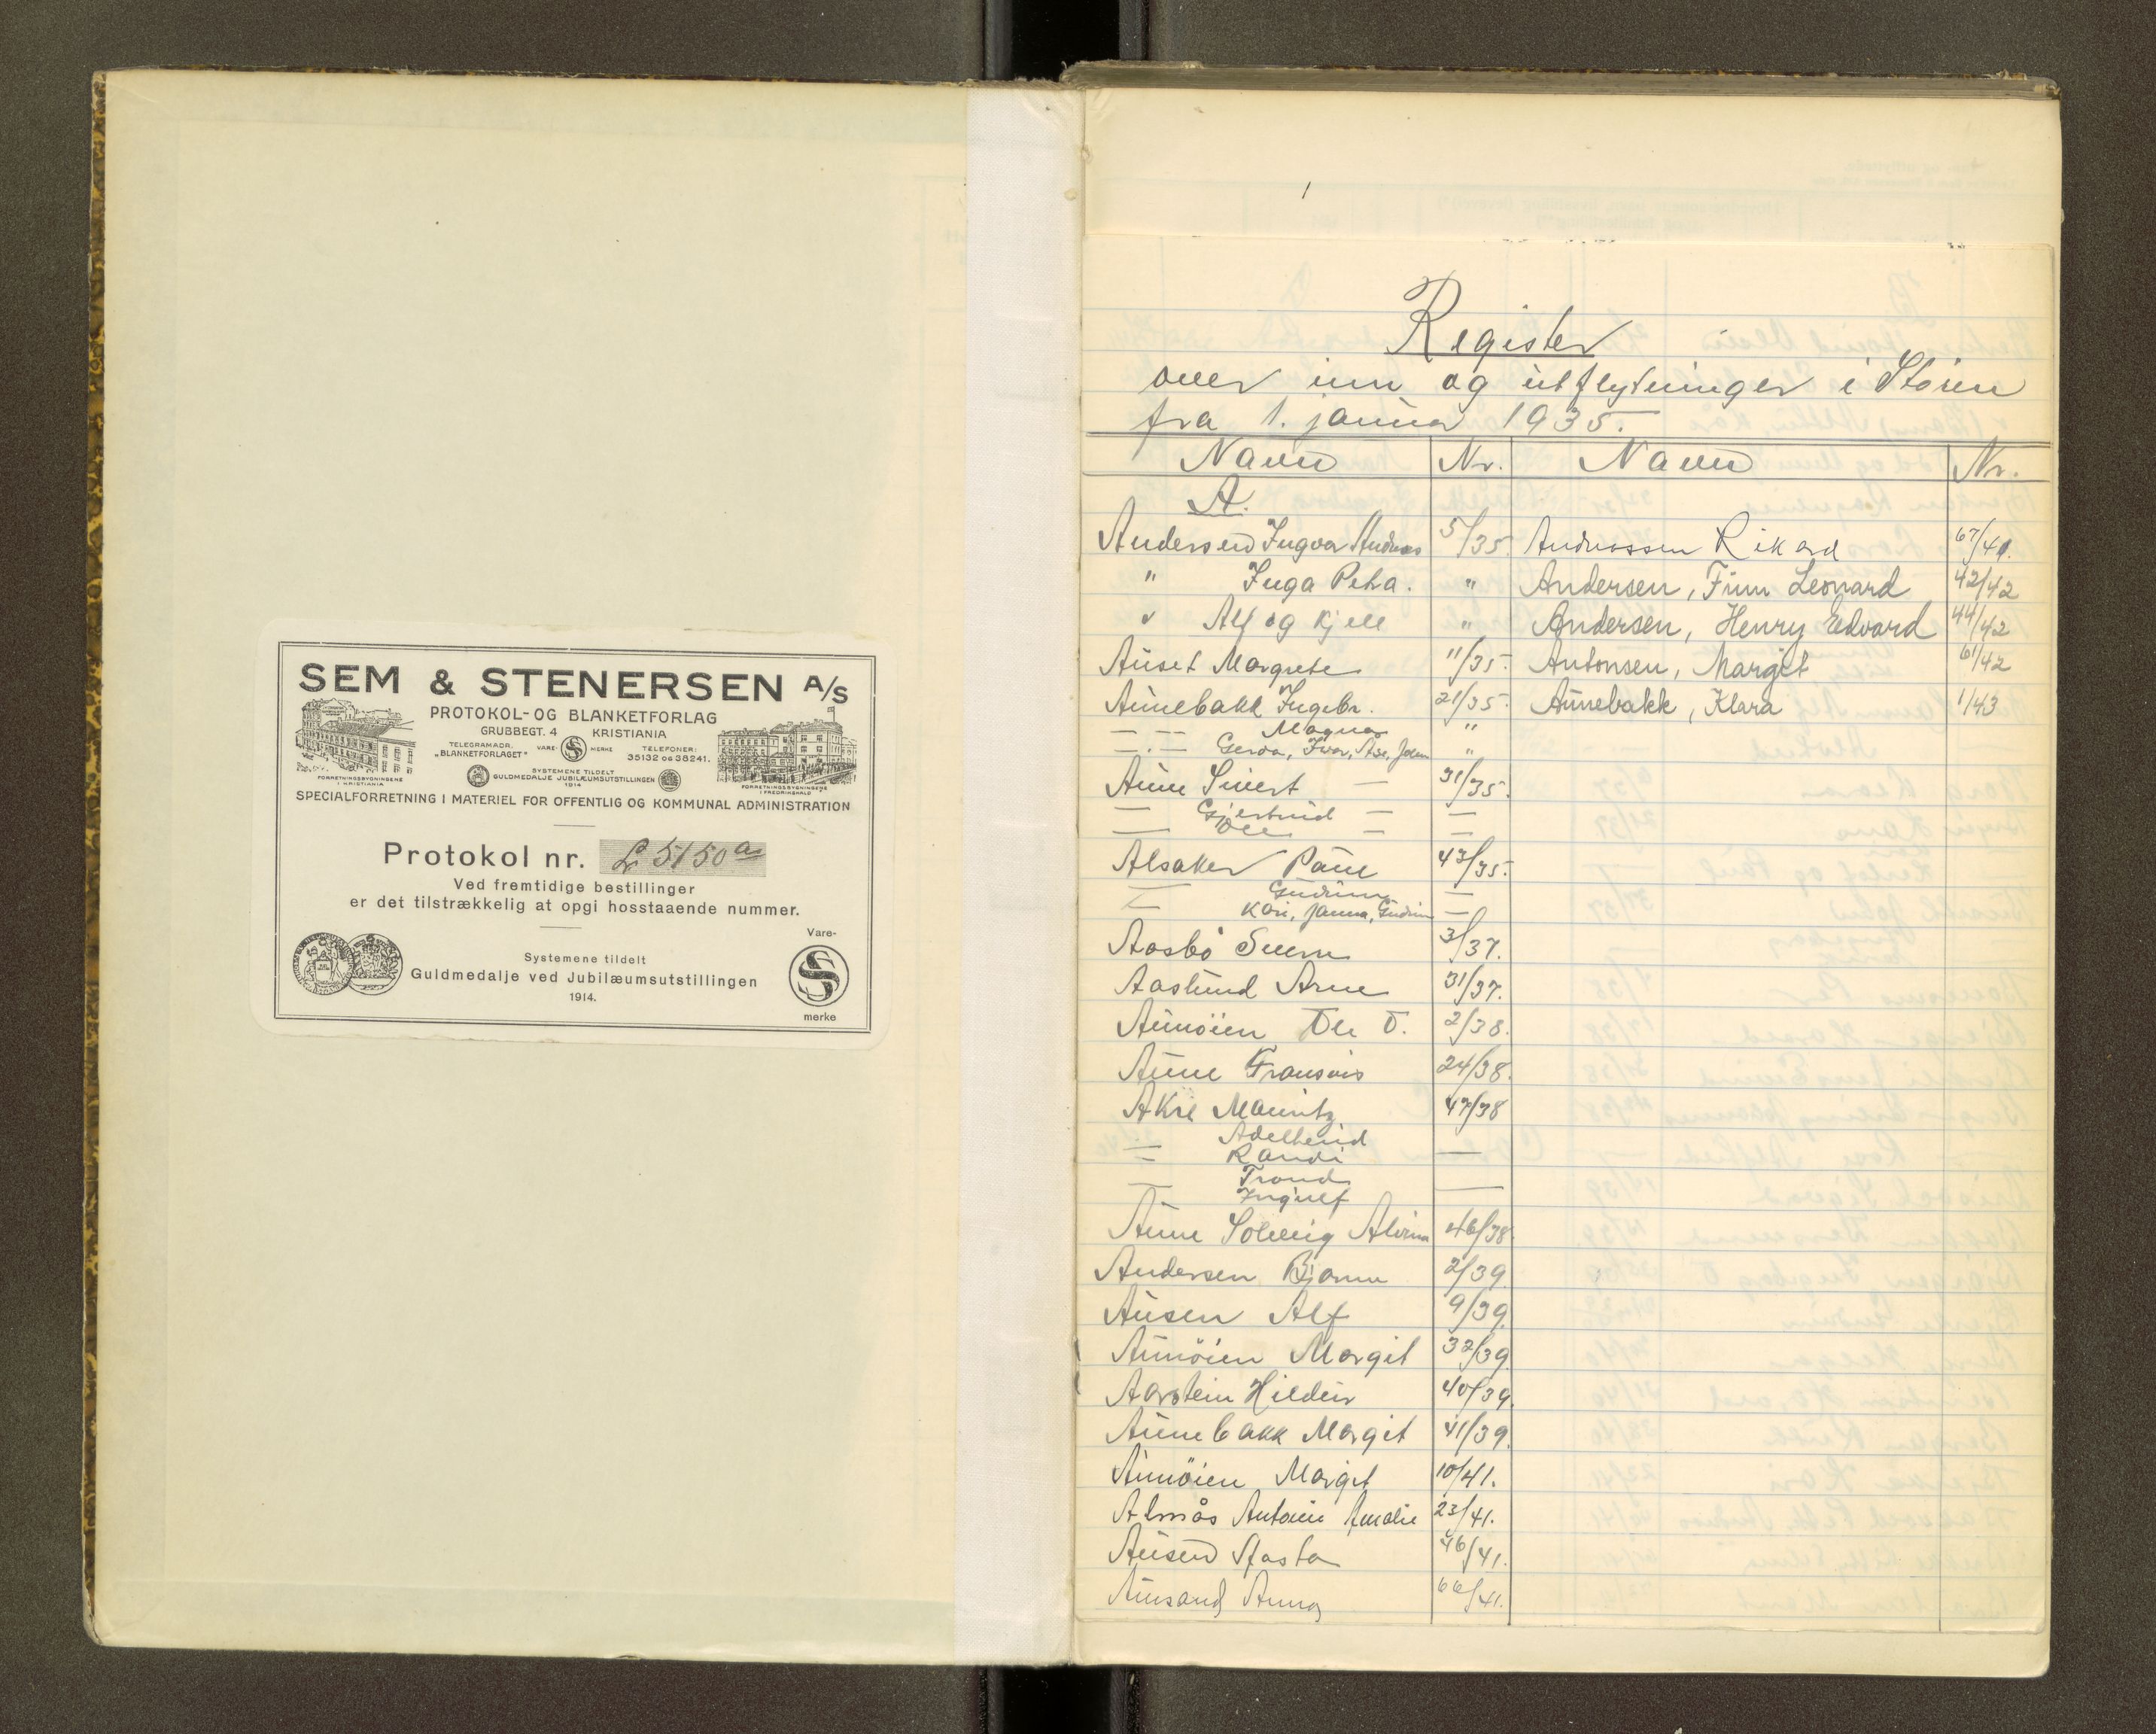 SEM & STENERSEN A/S
PROTOKOL- OG BLANKETFORLAG
GRUBBEGT. 4 KRISTIANIA
TELEGRAMADR. „BLANKETFORLAGET" VARE- MERKE TELEFONER: 35132 OG 38241.
SYSTEMENE TILDELT
GULDMEDALJE JUBILÆUMSUTSTILLINGEN
1914
FORRETNINGSBYGNINGENE I KRISTIANIA
FORRETNINGSBYGNINGENE I FREDRIKSHALD
SPECIALFORRETNING I MATERIEL FOR OFFENTLIG OG KOMMUNAL ADMINISTRATION
Protokol nr. L 5150 a
Ved fremtidige bestillinger
er det tilstrækkelig at opgi hosstaaende nummer.
Systemene tildelt
Guldmedalje ved Jubilæumsutstillingen
1914.
Vare-
merke
1
Register
over inn og utflytninger i Støren
fra 1. januar 1935.
Navn Nr. Navn Nr.
A.
Andersen Ingvar Andreas 5/35 Andreassen Rikard 67/41.
" Inga Petra. " Andersen, Finn Leonard 42/42
" Alf og Kjell " Andersen, Henry Edvard 44/42
Auset Margrete 11/35. Antonsen, Margit 61/42
Aunebakk Ingebr. 21/35. Aunebakk, Klara 1/43
— — Magna "
— . — Gerda, Ivar, Åse, "
Aune Sivert — 31/35.
— Gjertrud — —
— Ole — —
Alsaker Paul 43/35.
— Gudrun —
— Kari, Janna, Gudrun —
Aasbø Sverre 3/37.
Aaslund Arne 31/37.
Aunøien Ole O. 2/38.
Aune Fransois 24/38.
Akre Mauritz 47/38
Adelheid
— Randi —
Trond
— Ingulf —
Aune Solveig Alvina 46/38.
Andersen Bjarne 2/39
Ausen Alf 9/39.
Aunøien Margit 32/39
Aarstein Hildur 40/39.
Aunebakk Margit 41/39.
Aunøien Margit 10/41.
Almås Antonie Amalie 23/41.
Ausen Aasta 46/41.
Anna 66/41.